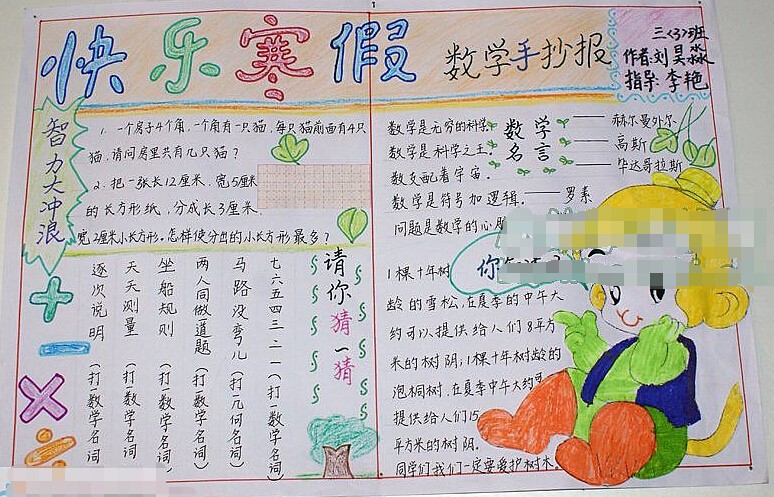 快乐寒假
数学手抄报
三〈3〉班
作者:刘昊淼
指导:李艳
智力大冲浪
1. 一个房子4个角,一个角有一只猫,每只猫前面有4只
猫,请问房里共有几只猫?
2. 把一张长12厘米、宽5厘米
的长方形纸,分成长3厘米、
宽2厘米小长方形。怎样使分出的小长方形最多?
请你猜一猜
七六五四三二一(打一数学名词)
马路没弯儿(打一几何名词)
两人同做道题(打一数学名词)
坐船规则(打一数学名词)
天天测量(打一数学名词)
逐次说明(打一数学名词)
数学名言
数学是无穷的科学。——赫尔曼外尔
数学是科学之王。——高斯
数支配着宇宙。——毕达哥拉斯
数学是符号加逻辑。——罗素
问题是数学的心
你
1棵十年树
龄的雪松,在夏季的中午大
约可以提供给人们8平方
米的树阴,1棵十年树龄的
泡桐树,在夏季中午大约可
提供给人们15
平方米的树阴。
同学们我们一定要爱护树木。